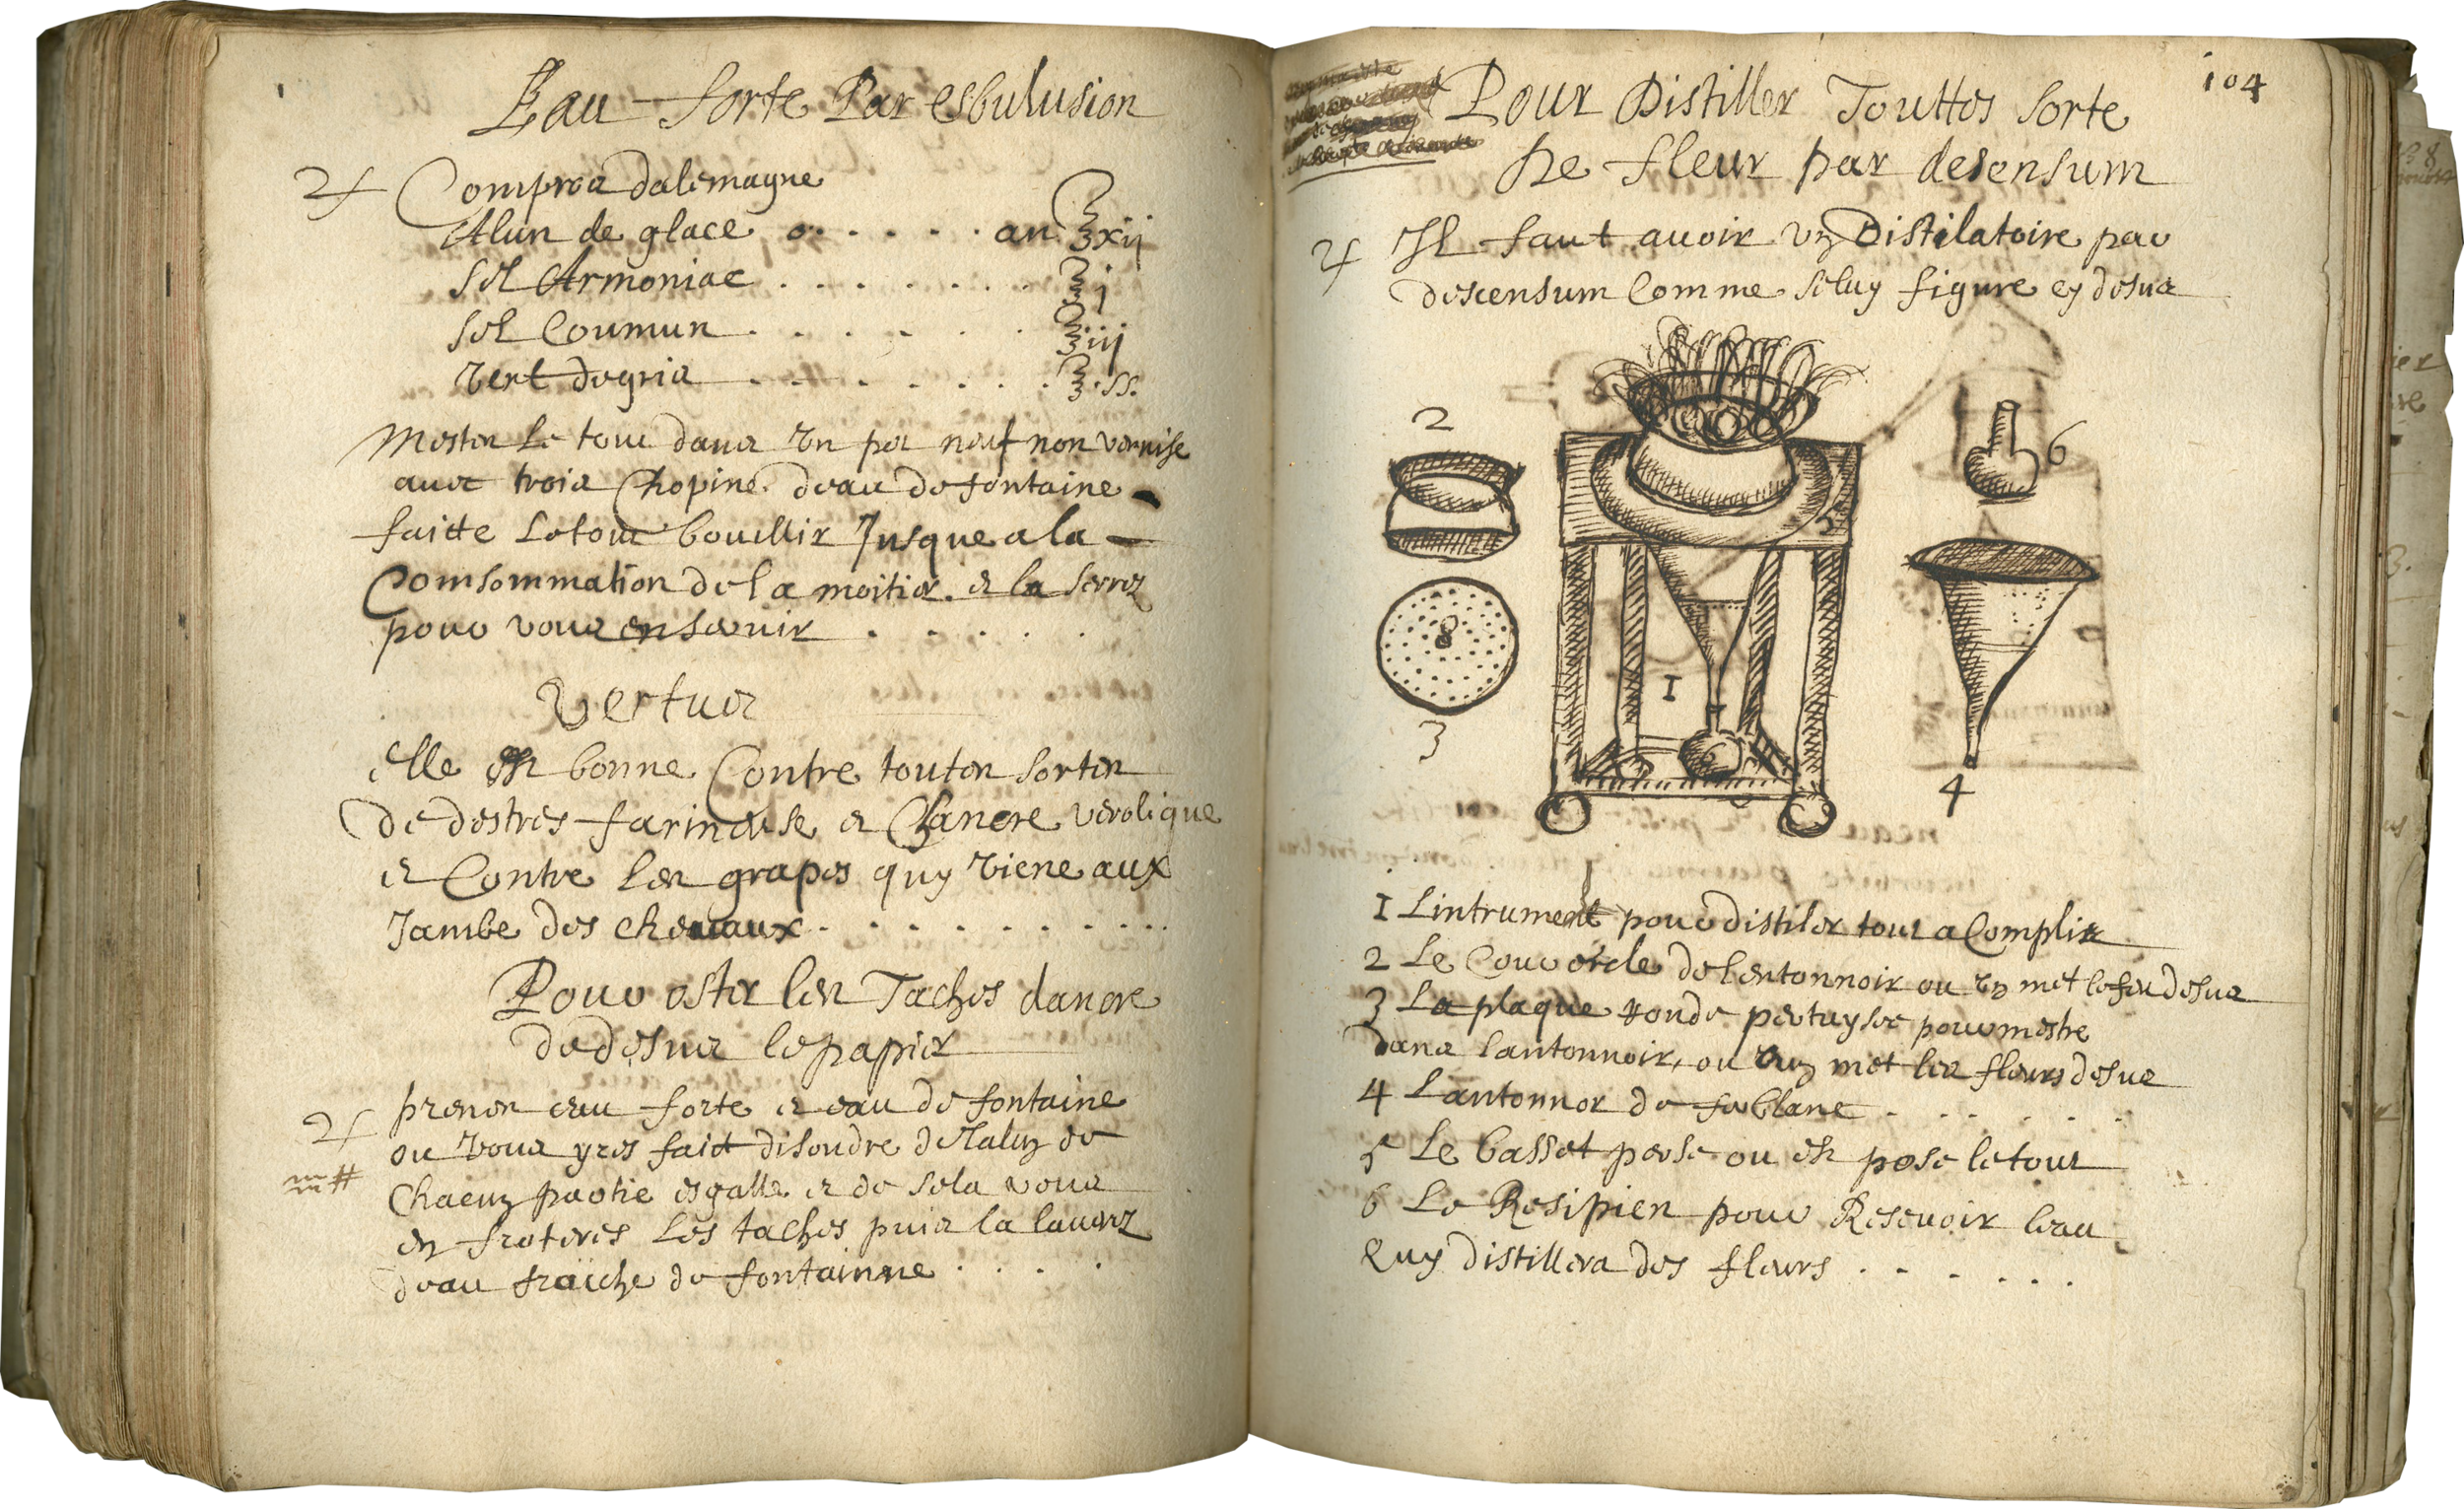 Eau forte Par esbulusion
♃ Comproz dalemagne
Alun de glace o . . . . . an ℥xij
Sel Armoniac . . . . . . . ℥j
Sel Coumun . . . . . . ℥iij
Vert degris . . . . . . . ℥ ss.
Mestez Le tout dans un pot neuf non vernise
avec trois Chopine deau de fontaine
faitte Letout bouillir Jusque a la
Comsommation de la moitiez et la serrez
pour vous en servir . . . . .
Vertus
elle est bonne Contre toutes sortes
de destres farineuse et Chancre verolique
et Contre les grapes quy viene aux
Jambe des chevaux . . . . . . . . . .
Pour oster les Taches dancre
de desus le papier
♃ prenez eau forte et eau de fontaine
ou vous yres fait disoudre de lalun de
Chacun partie esgalle et de sela vous
en froteres Les taches puis la lavez
deau fraiche de fontainne . . . .
104
Pour Distiller Touttes Sorte
De fleur par desensum
♃ Il faut avoir un Distilatoire par
descensum Comme seluy figure cy desus
2
6
5
8
1
3
6
4
1 Lintrument pour distiler tout a Complit
2 Le Couvercle de lentonnoir ou on met le feu desus
3 La plaque ronde pertuysee pour mestre
dans lantonnoir, ou on met les fleurs desus
4 Lantonnor de fer blanc . . . . . .
5 Le basset perse ou est pose le tout
6 Le Resipien pour Resevoir leau
quy distillera des fleurs . . . . . .